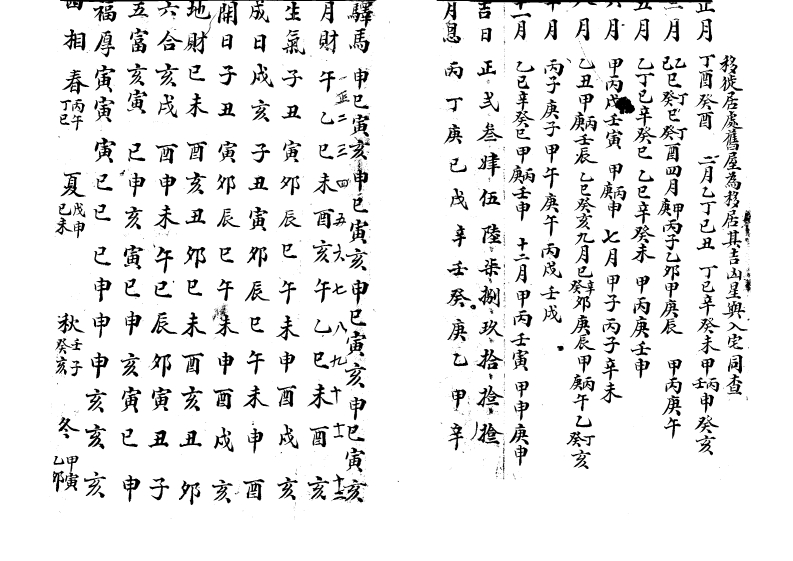 移徙居處舊屋為移居其吉凶星與入宅同查
正月 丁酉癸酉 二月乙丁己丑 丁巳辛癸未甲丙壬申癸亥
二月 乙己丁癸巳丁癸酉四月甲庚丙子乙卯甲庚辰 甲丙庚午
五月 乙丁巳辛癸巳 乙巳辛癸未 甲丙庚壬申
六月 甲丙戌壬寅 甲庚丙申 七月甲子丙子辛未
八月 乙丑甲庚丙壬辰 乙巳癸亥九月巳辛癸卯庚辰甲庚丙午乙丁癸亥
十月 丙子庚子甲午庚午丙戌壬戌
十一月 乙巳辛癸巳甲庚丙壬申 十二月甲丙壬寅 甲甲庚申
吉日 正弍叁肆伍陸柒捌玖拾拾拾
月息 丙丁庚巳戊辛壬癸庚乙甲辛
驛馬 申巳寅亥申巳寅亥申巳寅亥申巳寅亥
正二三四五六七八九十十一十二
月財 午乙巳未酉亥午乙巳未酉亥
生氣 子丑寅卯辰巳午未申酉戌亥
成日 戌亥子丑寅卯辰巳午未申酉
開日 子丑寅卯辰巳午未申酉戌亥
地財 巳未酉亥丑卯巳未酉亥丑卯
六合 亥戌酉申未午巳辰卯寅丑子
五富 亥寅巳申亥寅巳申亥寅巳申
福厚 寅寅寅巳巳巳申申申亥亥亥
四相 春丙午丁巳 夏戊申己未 秋壬子癸亥 冬甲寅乙卯